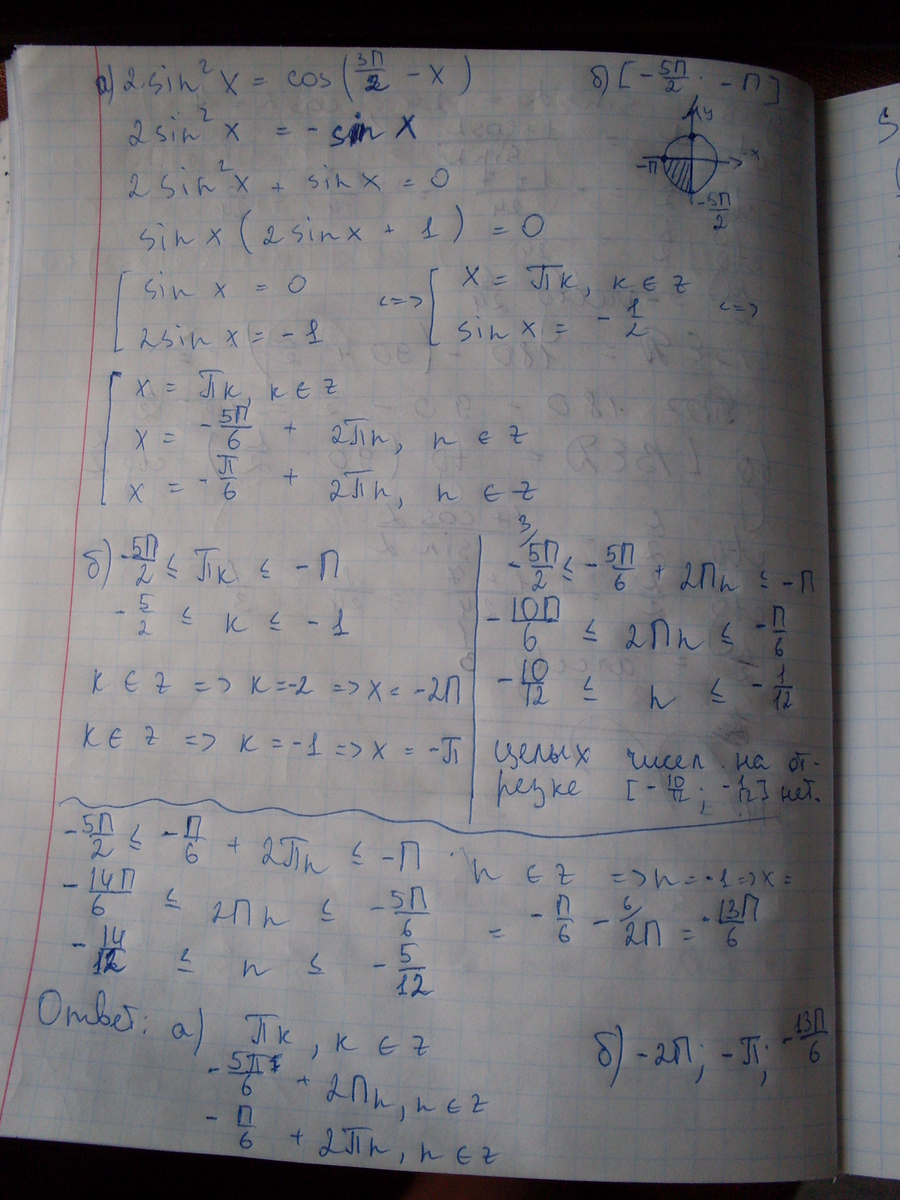 а) 2sin²x = cos(3π/2 − x)
2sin²x = −sin x
2sin²x + sin x = 0
sin x (2sin x + 1) = 0
[ sin x = 0 <=> [ x = πk, k ∈ z
2sin x = −1 sin x = −1/2 <=>
[ x = πk, k ∈ z
x = −5π/6 + 2πn, n ∈ z
x = −π/6 + 2πn, n ∈ z
б) [−5π/2; −π]
y
x
−π
−5π/2
б) −5π/2 ≤ πk ≤ −π
−5/2 ≤ k ≤ −1
k ∈ z => k=−2 => x = −2π
k ∈ z => k = −1 => x = −π
3/
−5π/2 ≤ −5π/6 + 2πn ≤ −π
−10π/6 ≤ 2πn ≤ −π/6
−10/12 ≤ n ≤ −1/12
целых чисел на от-
резке [−10/12; −1/12] нет.
−5π/2 ≤ −π/6 + 2πn ≤ −π
−14π/6 ≤ 2πn ≤ −5π/6
−14/12 ≤ n ≤ −5/12
n ∈ z => n = −1 => x =
= −π/6 − 6/2π = −13π/6
Ответ: а) πk, k ∈ z
−5π/6 + 2πn, n ∈ z
−π/6 + 2πn, n ∈ z
б) −2π; −π; −13π/6